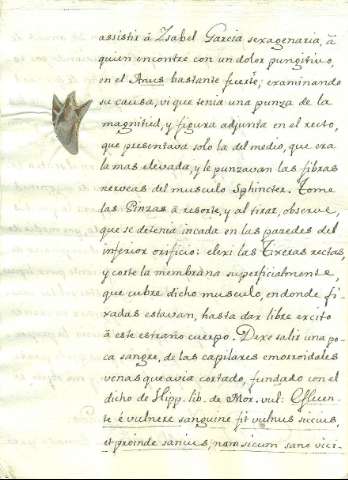 assistir â Ysabel Garcia sexagenaria, â
quien encontre con un dolor pungitivo,
en el Anus bastante fuerte; examinando
su causa, vi que tenia una punza de la
magnitud, y figura adjunta en el recto,
que presentava solo la del medio, que era
la mas elevada, y le punzavan las fibras
nerveas del musculo Sphincter. Tome
las Pinzas â resorte, y al tirar, observe,
que se detenia incada en las paredes del
inferior orificio: elexi las Tixeras rectas,
y corte la membrana superficialmente,
que cubre dicho musculo, endonde fi-
xadas estavan, hasta dar libre excito
â este estraño cuerpo. Dexe salir una po-
ca sangre, de las capilares emorroidales
venas que avia cortado, fundado con el
dicho de Hipp. lib. de Mor. vul: Efluen-
te é vulnere sanguine fit vulnus siccius,
et proinde sanius, nam siccum sano vici-